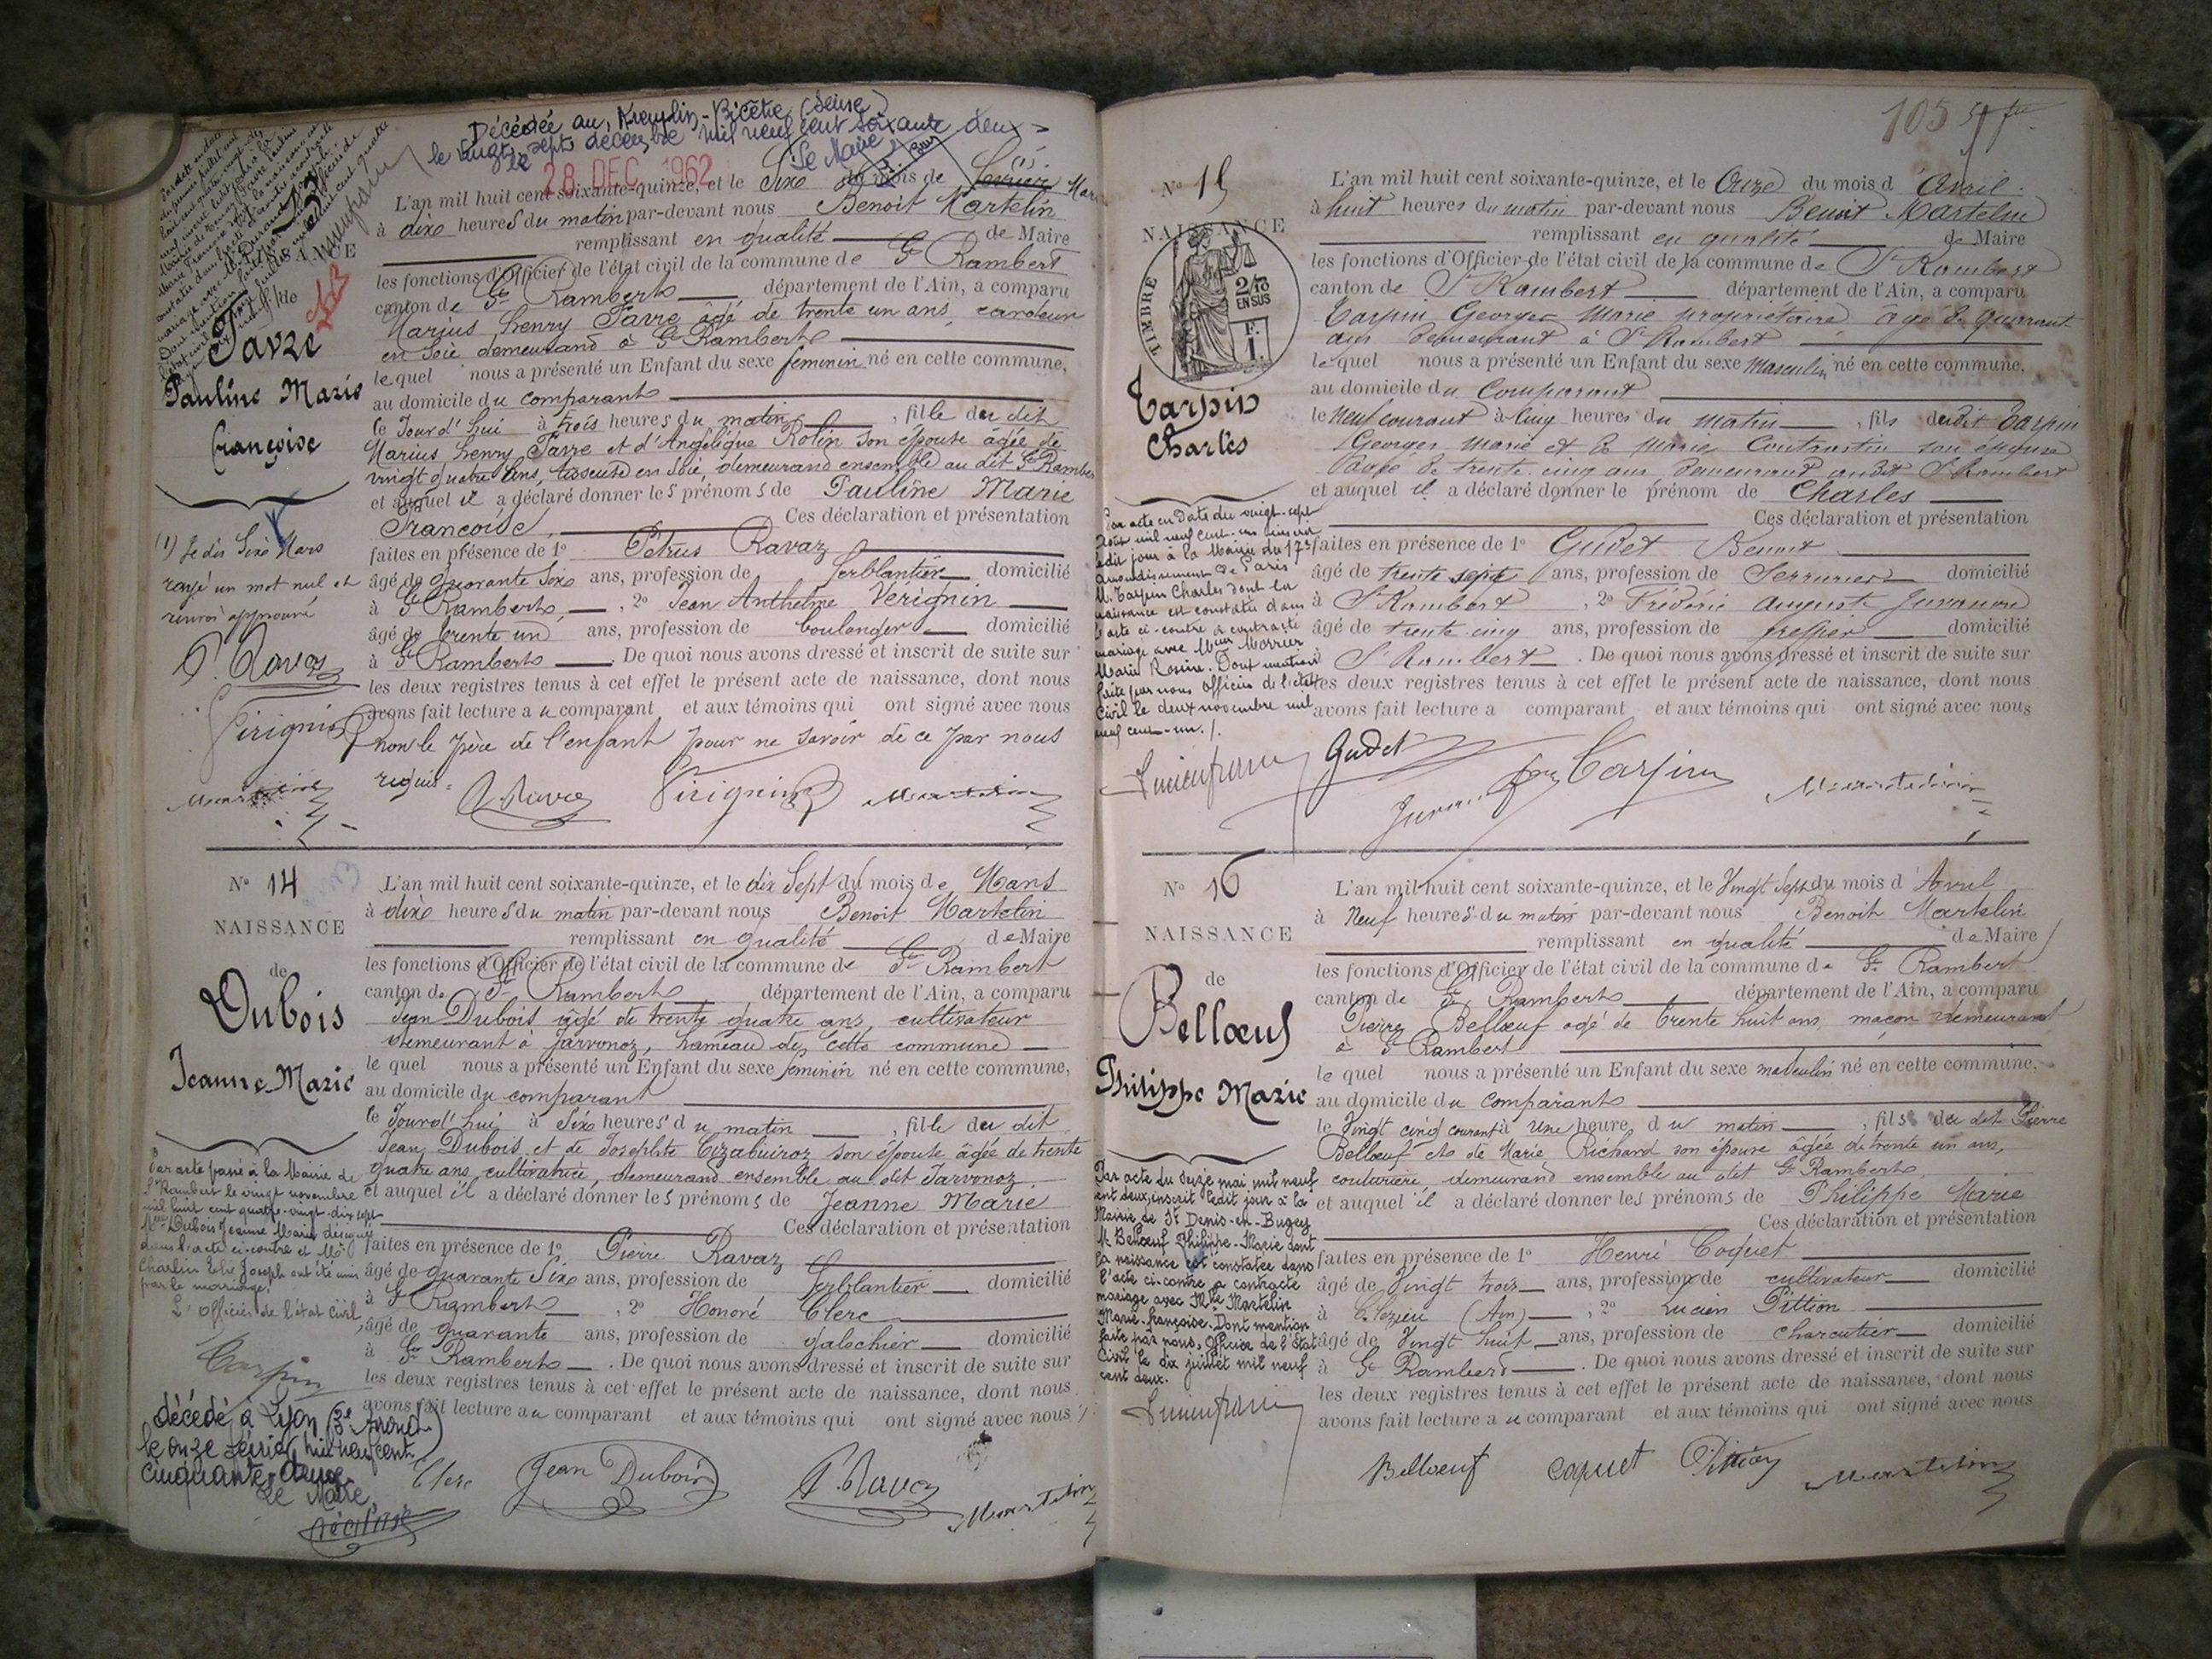 Décédée au Kremlin-Bicêtre (Seine)
le vingt-sept décembre mil neuf cent soixante deux
le 28 DEC 1962 Le Maire
NAISSANCE
de
Favre
Pauline Marie
françoise
(1) Je dis Sixe Mars
rayé un mot nul et
renvoi approuvé
P. Ravaz
Virignin
L'an mil huit cent soixante-quinze, et le Sixe du mois de février
à dixe heures du matin par-devant nous Benoit Martelin
remplissant en qualité de Maire
les fonctions d'Officier de l'état civil de la commune de St Rambert
canton de St Rambert, département de l'Ain, a comparu
Marius henry Favre âgé de trente un ans, cardeur
en Soie demeurand à St Rambert
lequel nous a présenté un Enfant du sexe feminin né en cette commune,
au domicile du comparant
le Jourd'hui à trois heures du matin, fille du dit
Marius henry Favre et d'Angélique Rolin son épouse âgée de
vingt quatre ans, tisseuse en Soie, demeurand ensemble au dit St Rambert
et auquel il a déclaré donner les prénoms de Pauline Marie
Françoise, Ces déclaration et présentation
faites en présence de 1º Pétrus Ravaz
âgé de quarante Sixe ans, profession de ferblantier domicilié
à St Rambert, 2º Jean Anthelme Verignin
âgé de trente un ans, profession de boulanger domicilié
à St Rambert. De quoi nous avons dressé et inscrit de suite sur
les deux registres tenus à cet effet le présent acte de naissance, dont nous
avons fait lecture au comparant et aux témoins qui ont signé avec nous
non le père de l'enfant pour ne savoir de ce par nous
requis.
P. Ravaz Virignin Martelin
Nº 14
NAISSANCE
de
Dubois
Jeanne Marie
L'an mil huit cent soixante-quinze, et le dix Sept du mois de Mars
à dixe heures du matin par-devant nous Benoit Martelin
remplissant en qualité de Maire
les fonctions d'Officier de l'état civil de la commune de St Rambert
canton de St Rambert département de l'Ain, a comparu
Jean Dubois âgé de trente quatre ans, cultivateur
demeurant à Javornoz, hameau de cette commune
le quel nous a présenté un Enfant du sexe feminin né en cette commune,
au domicile du comparant
le Jourd'hui à Sixe heures du matin, fille du dit
Jean Dubois et de Josephte son épouse âgée de trente
quatre ans, cultivatrice, demeurand ensemble au dit Javornoz
et auquel il a déclaré donner les prénoms de Jeanne Marie
Ces déclaration et présentation
faites en présence de 1º Pierre Ravaz
âgé de quarante Sixe ans, profession de ferblantier domicilié
à St Rambert, 2º Honoré Clerc
âgé de quarante ans, profession de galochier domicilié
à St Rambert. De quoi nous avons dressé et inscrit de suite sur
les deux registres tenus à cet effet le présent acte de naissance, dont nous
avons fait lecture au comparant et aux témoins qui ont signé avec nous
Clerc Jean Dubois P. Ravaz Martelin
Par acte passé à la Mairie de
St Rambert le vingt novembre
mil huit cent quatre-vingt-dix sept
Melle Dubois Jeanne Marie désignée
dans l'acte ci-contre et Mr
Charlin Joseph ont été unis
par le mariage.
L'officier de l'état civil
Tarpin
décédé à Lyon (3e Arrond.)
le onze février mil neuf cent
cinquante-deux
Le Maire,
105
Nº 15
NAISSANCE
TIMBRE
2/10
EN SUS
Tarpin
Charles
L'an mil huit cent soixante-quinze, et le Onze du mois d'Avril
à huit heures du matin par-devant nous Benoit Martelin
remplissant en qualité de Maire
les fonctions d'Officier de l'état civil de la commune de St Rambert
canton de St Rambert département de l'Ain, a comparu
Tarpin Georges Marie propriétaire agé de quarant
ans demeurant à St Rambert
lequel nous a présenté un Enfant du sexe Masculin né en cette commune,
au domicile du Comparant
le Neuf courant à cinq heures du matin, fils dudit Tarpin
Georges Marie et de Marie son épouse
agée de trente cinq ans demeurant audit St Rambert
et auquel il a déclaré donner le prénom de Charles
Ces déclaration et présentation
faites en présence de 1º Gudet Benoit
âgé de trente sept ans, profession de Serrurier domicilié
à St Rambert, 2º Frédéric Auguste Juvanon
âgé de trente cinq ans, profession de greffier domicilié
à St Rambert. De quoi nous avons dressé et inscrit de suite sur
les deux registres tenus à cet effet le présent acte de naissance, dont nous
avons fait lecture a comparant et aux témoins qui ont signé avec nous
Gudet Tarpin Martelin
Par acte en date du vingt-sept
Août mil neuf cent-un transcrit
ledit jour à la Mairie du 17e
arrondissement de Paris
M. Tarpin Charles dont la
naissance est constatée dans
l'acte ci-contre a contracté
mariage avec Melle Morrier
Marie Rosine. Dont mention
faite par nous Officier de l'état
Civil le deux novembre mil
neuf cent-un./.
Nº 16
NAISSANCE
de
Bellœuf
Philippe Marie
L'an mil huit cent soixante-quinze, et le Vingt Sept du mois d'Avril
à Neuf heures du matin par-devant nous Benoit Martelin
remplissant en qualité de Maire
les fonctions d'Officier de l'état civil de la commune de St Rambert
canton de St Rambert département de l'Ain, a comparu
Pierre Bellœuf agé de trente huit ans, maçon demeurant
à St Rambert
le quel nous a présenté un Enfant du sexe masculin né en cette commune,
au domicile du Comparant
le Vingt cinq courant à Une heure du matin, fils du dit Pierre
Bellœuf et de Marie Richard son épouse âgée de trente un ans,
couturière, demeurand ensemble au dit St Rambert
et auquel il a déclaré donner les prénoms de Philippe Marie
Ces déclaration et présentation
faites en présence de 1º Henri Coquet
âgé de Vingt trois ans, profession de cultivateur domicilié
à (Ain), 2º Lucien Pittion
âgé de Vingt huit ans, profession de charcutier domicilié
à St Rambert. De quoi nous avons dressé et inscrit de suite sur
les deux registres tenus à cet effet le présent acte de naissance, dont nous
avons fait lecture au comparant et aux témoins qui ont signé avec nous
Bellœuf Coquet Pittion Martelin
Par acte du seize mai mil neuf
cent deux, inscrit ledit jour à la
Mairie de St Denis-en-Bugey
Mr Bellœuf Philippe-Marie dont
la naissance est constatée dans
l'acte ci-contre a contracté
mariage avec Mlle Martelin
Marie-françoise. Dont mention
faite par nous, Officier de l'Etat
Civil le dix juillet mil neuf
cent deux.